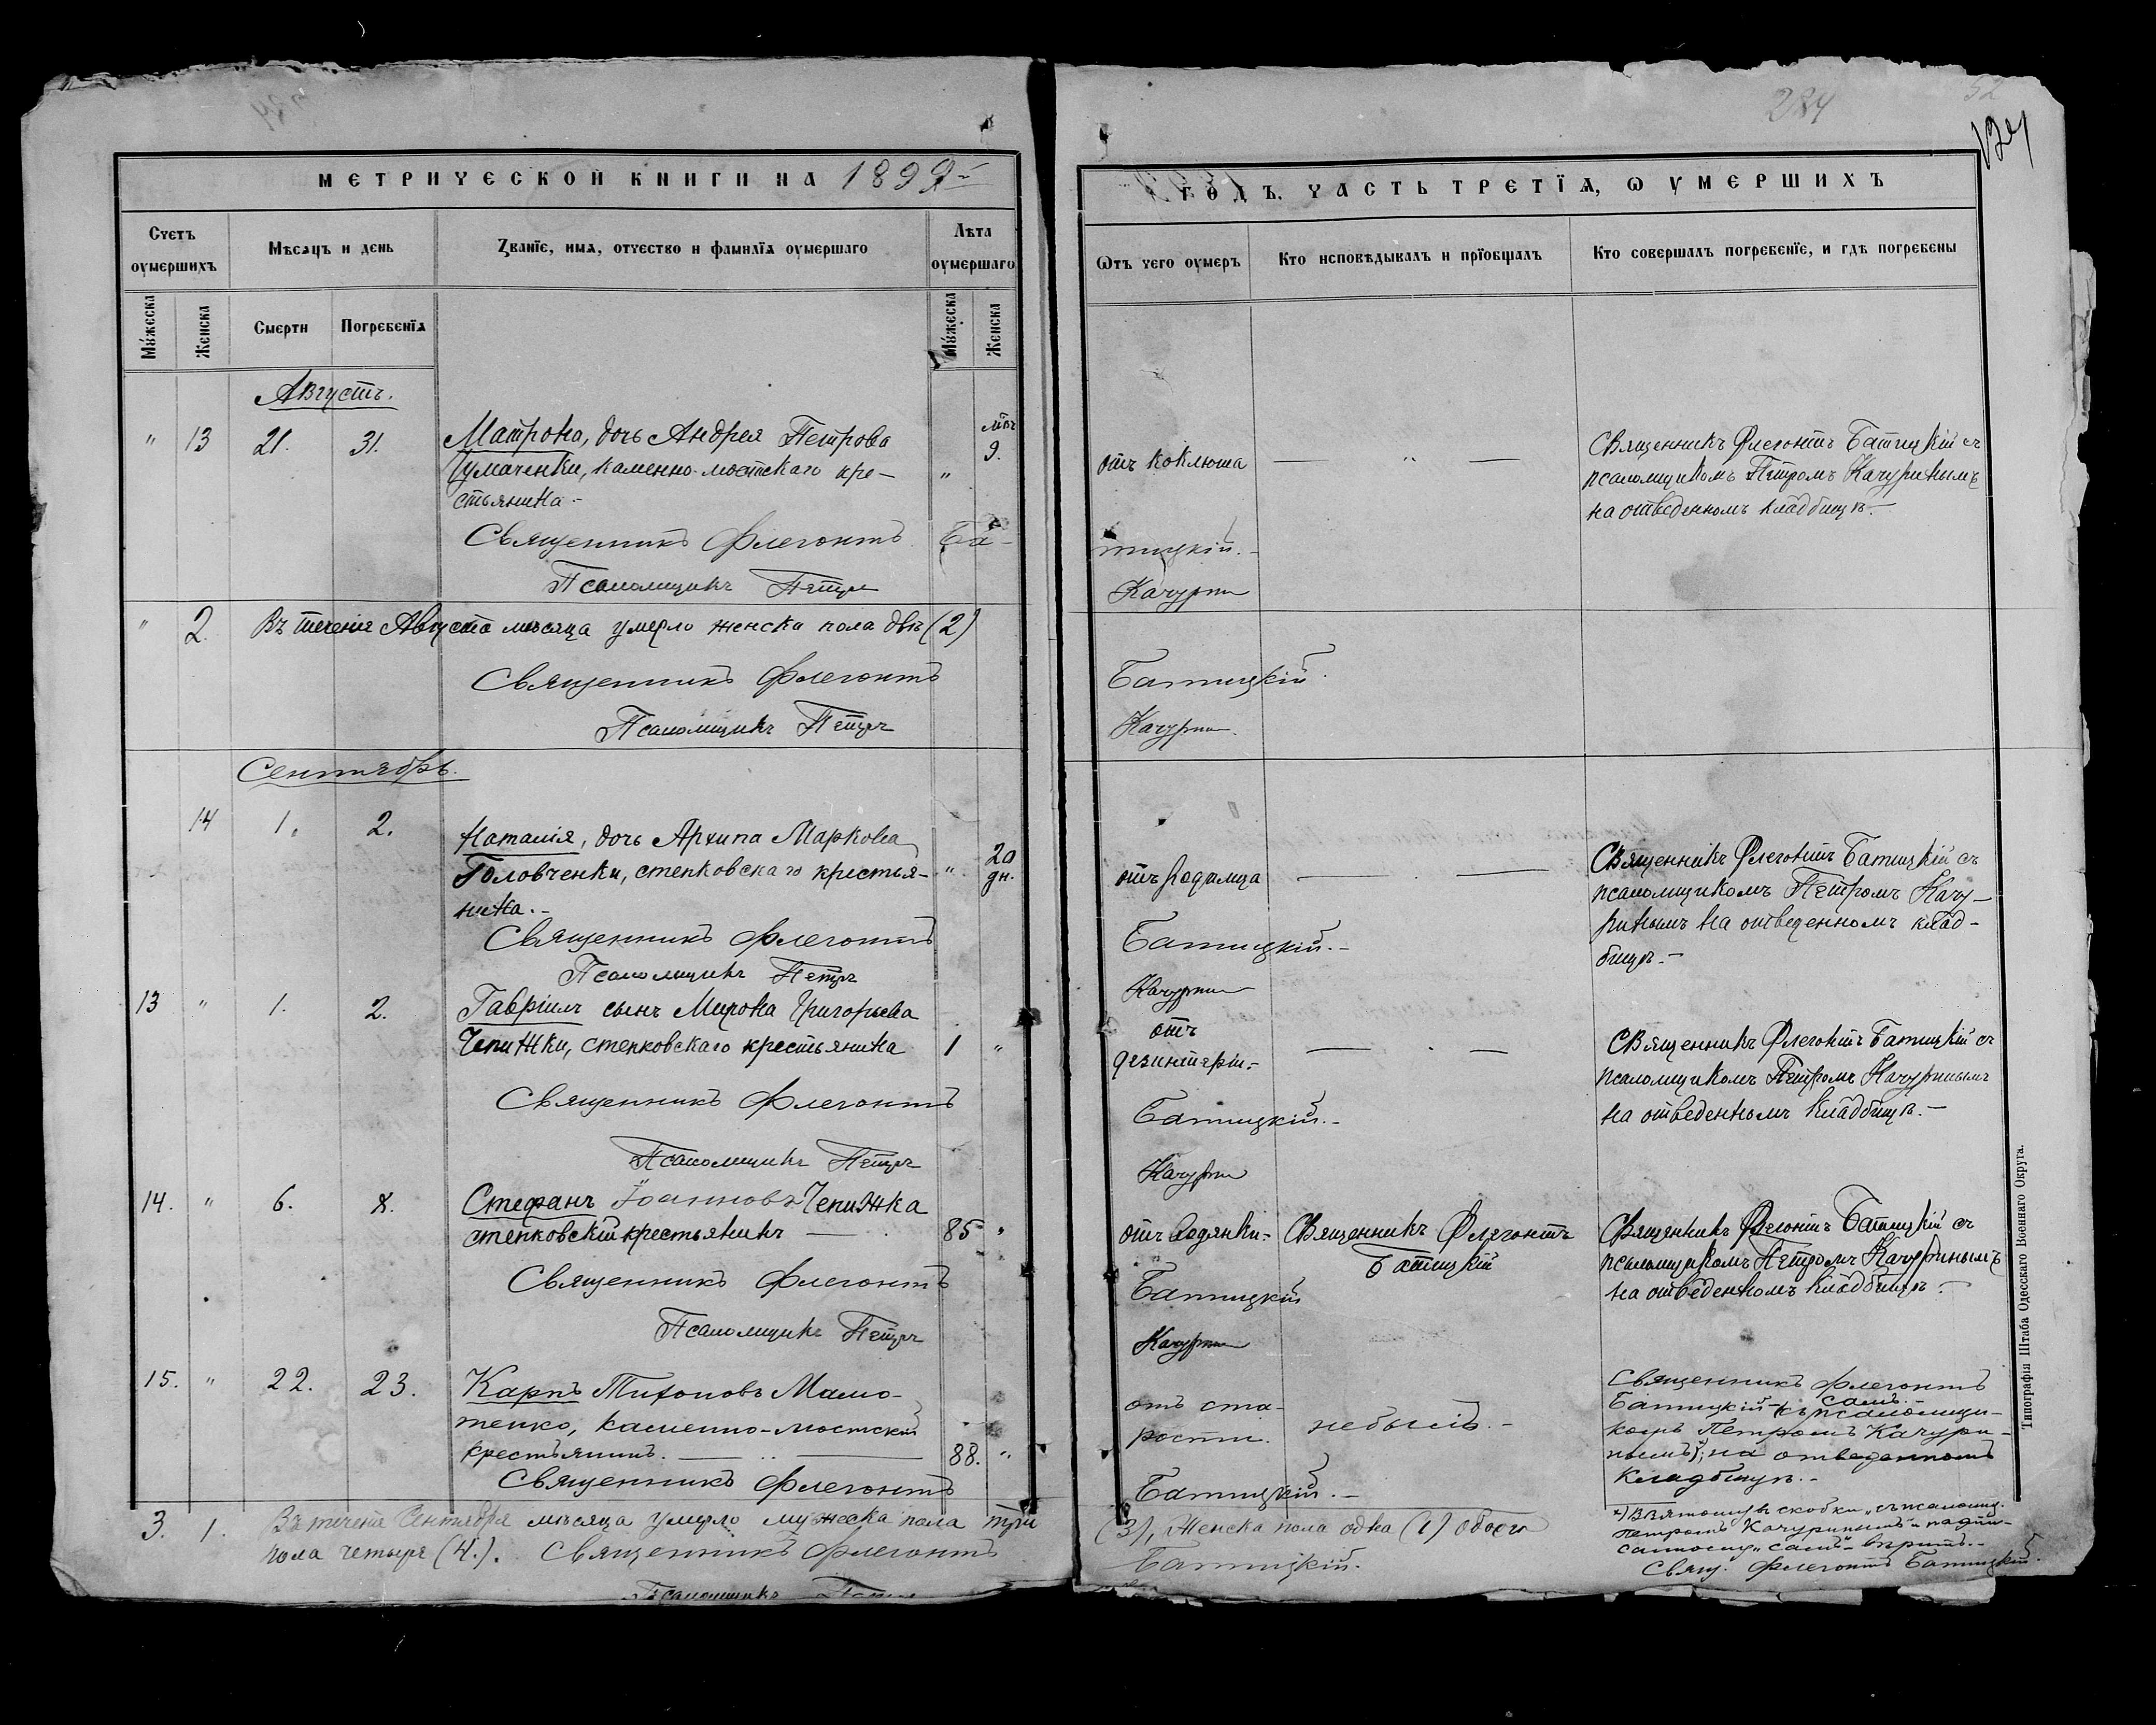 234
52
124
МЕТРИЧЕСКОЙ КНИГИ НА 1899 г.
ГОДЪ, ЧАСТЬ ТРЕТЇѦ, Ѡ УМЕРШИХЪ
Счетъ оумершихъ
Мѣсѧцъ и день
Званїе, имѧ, отчество и фамилїѧ оумершаго
Лѣта оумершаго
Мужеска
Женска
Смерти
Погребенїѧ
Мужеска
Женска
Ѿтъ чего оумеръ
Кто исповѣдывалъ и прїобщалъ
Кто совершалъ погребенїе, и гдѣ погребены
Августъ.
" 13 21. 31. Матрона, дочь Андрея Петрова
Чумаченки, каменно-мостскаго кре-
стьянина.-
" мѣс. 9.
отъ коклюша
Священникъ Флегонтъ Батицкій съ
псаломщикомъ Петромъ Качуринымъ
на отведенномъ кладбищѣ.-
Священникъ Флегонтъ Ба-
тицкій.-
Псаломщикъ Петръ
Качуринъ
" 2. Въ теченіе Августа мѣсяца умерло женска пола двѣ (2)
Священникъ Флегонтъ
Батицкій.
Псаломщикъ Петръ
Качуринъ.
Сентябрь.
14 1. 2. Наталія, дочь Архипа Маркова
Головченки, степковскаго крестья-
нина.-
" 20 дн.
отъ родимца
Священникъ Флегонтъ Батицкій съ
псаломщикомъ Петромъ Качу-
ринымъ на отведенномъ клад-
бищѣ.-
Священникъ Флегонтъ
Батицкій.-
Псаломщикъ Петръ
Качуринъ
13 " 1. 2. Гавріилъ сынъ Мирона Григорьева
Чепижки, степковскаго крестьянина 1 "
отъ
дезинтеріи.-
Священникъ Флегонтъ Батицкій съ
псаломщикомъ Петромъ Качуринымъ
на отведенномъ кладбищѣ.-
Священникъ Флегонтъ
Батицкій.-
Псаломщикъ Петръ
Качуринъ
14. " 6. 8. Стефанъ Іоанновъ Чепижка
степковскій крестьянинъ 85 "
отъ водянки.-
Священникъ Флегонтъ
Батицкій
Священникъ Флегонтъ Батицкій съ
псаломщикомъ Петромъ Качуринымъ
на отведенномъ кладбищѣ.-
Священникъ Флегонтъ
Батицкій
Псаломщикъ Петръ
Качуринъ
15. " 22. 23. Карпъ Тихоновъ
каменно-мостскій
крестьянинъ. 88. "
отъ ста-
рости.
небылъ.-
Священникъ Флегонтъ
Батицкій самъ.- (съ псаломщи-
комъ Петромъ Качури-
нымъ), на отведенномъ
кладбищѣ.-
Священникъ Флегонтъ
Батицкій.-
3. 1. Въ теченіе Сентября мѣсяца умерло мужеска пола три
(3), женска пола одна (1) обоего
пола четыре (4.). Священникъ Флегонтъ
Батицкій.
Псаломщикъ Петръ
Взятому въ скобки "съ псаломщ.
Петромъ Качуринымъ" и надпи-
санному "самъ" вѣрить.-
Свящ. Флегонтъ Батицкій.
Типографія Штаба Одесскаго Военнаго Округа.